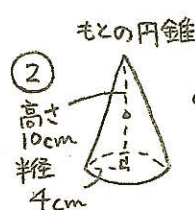 もとの円錐
②
高さ
10cm
半径
4cm